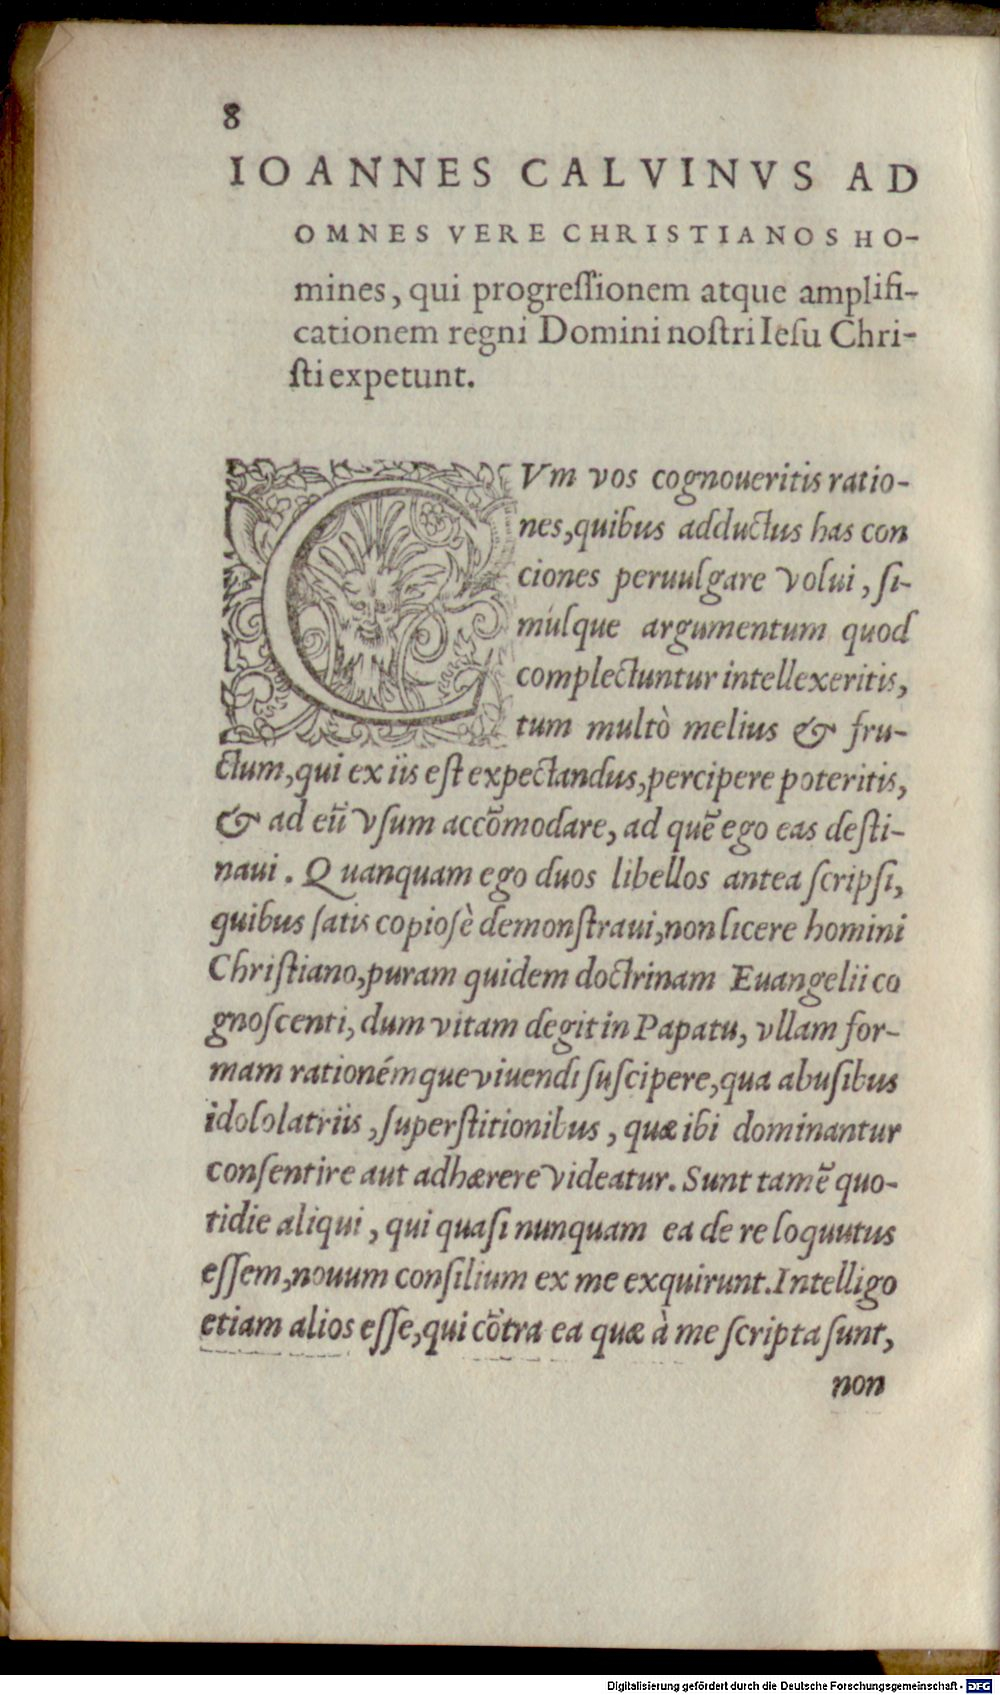 8
IOANNES CALVINVS AD
OMNES VERE CHRISTIANOS HO-
mines, qui progreſſionem atque amplifi-
cationem regni Domini noſtri Ieſu Chri-
ſti expetunt.
CVm vos cognoueritis ratio-
nes, quibus adductus has con
ciones peruulgare volui, ſi-
múlque argumentum quod
complectuntur intellexeritis,
tum multò melius & fru-
ctum, qui ex iis eſt expectandus, percipere poteritis,
& ad eũ vſum accõmodare, ad quẽ ego eas deſti-
naui. Quanquam ego duos libellos antea ſcripſi,
quibus ſatis copioſè demonſtraui, non licere homini
Chriſtiano, puram quidem doctrinam Euangelii co
gnoſcenti, dum vitam degit in Papatu, vllam for-
mam rationémque viuendi ſuſcipere, qua abuſibus
idololatriis, ſuperſtitionibus, quæ ibi dominantur
conſentire aut adhærere videatur. Sunt tamẽ quo-
tidie aliqui, qui quaſi nunquam ea de re loquutus
eſſem, nouum conſilium ex me exquirunt. Intelligo
etiam alios eſſe, qui cõtra ea quæ à me ſcripta ſunt,
non
Digitalisierung gefördert durch die Deutsche Forschungsgemeinschaft - DFG